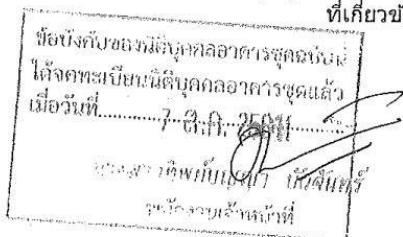 ที่เกี่ยวข
ข้อบังคับของนิติบุคคลอาคารชุดฉบับนี้
ได้จดทะเบียนนิติบุคคลอาคารชุดแล้ว
เมื่อวันที่ 7 ส.ค. 2561
พนักงานเจ้าหน้าที่